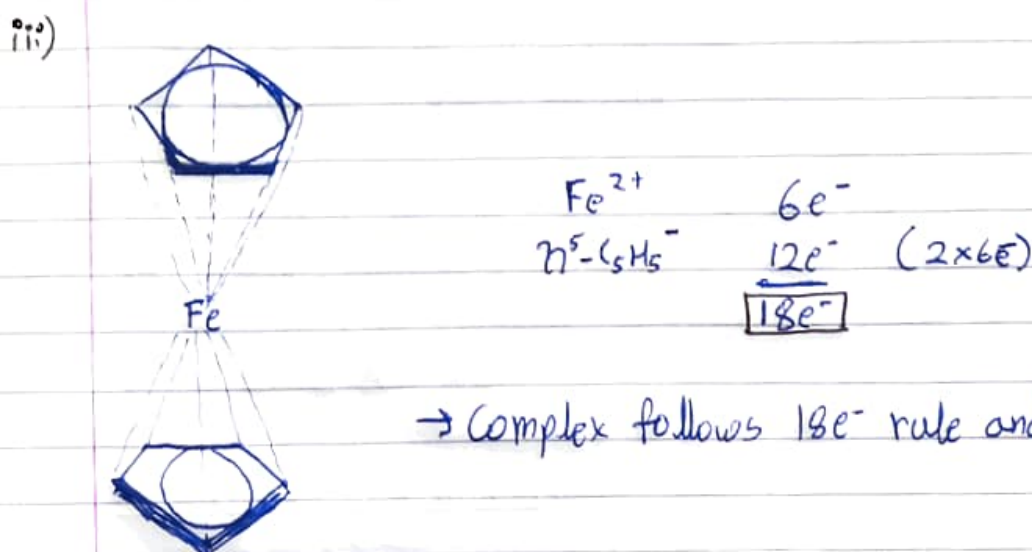 iii)
Fe²⁺ 6e⁻
η⁵-C₅H₅⁻ 12e⁻ (2×6e⁻)
18e⁻
Fe
→ Complex follows 18e⁻ rule and